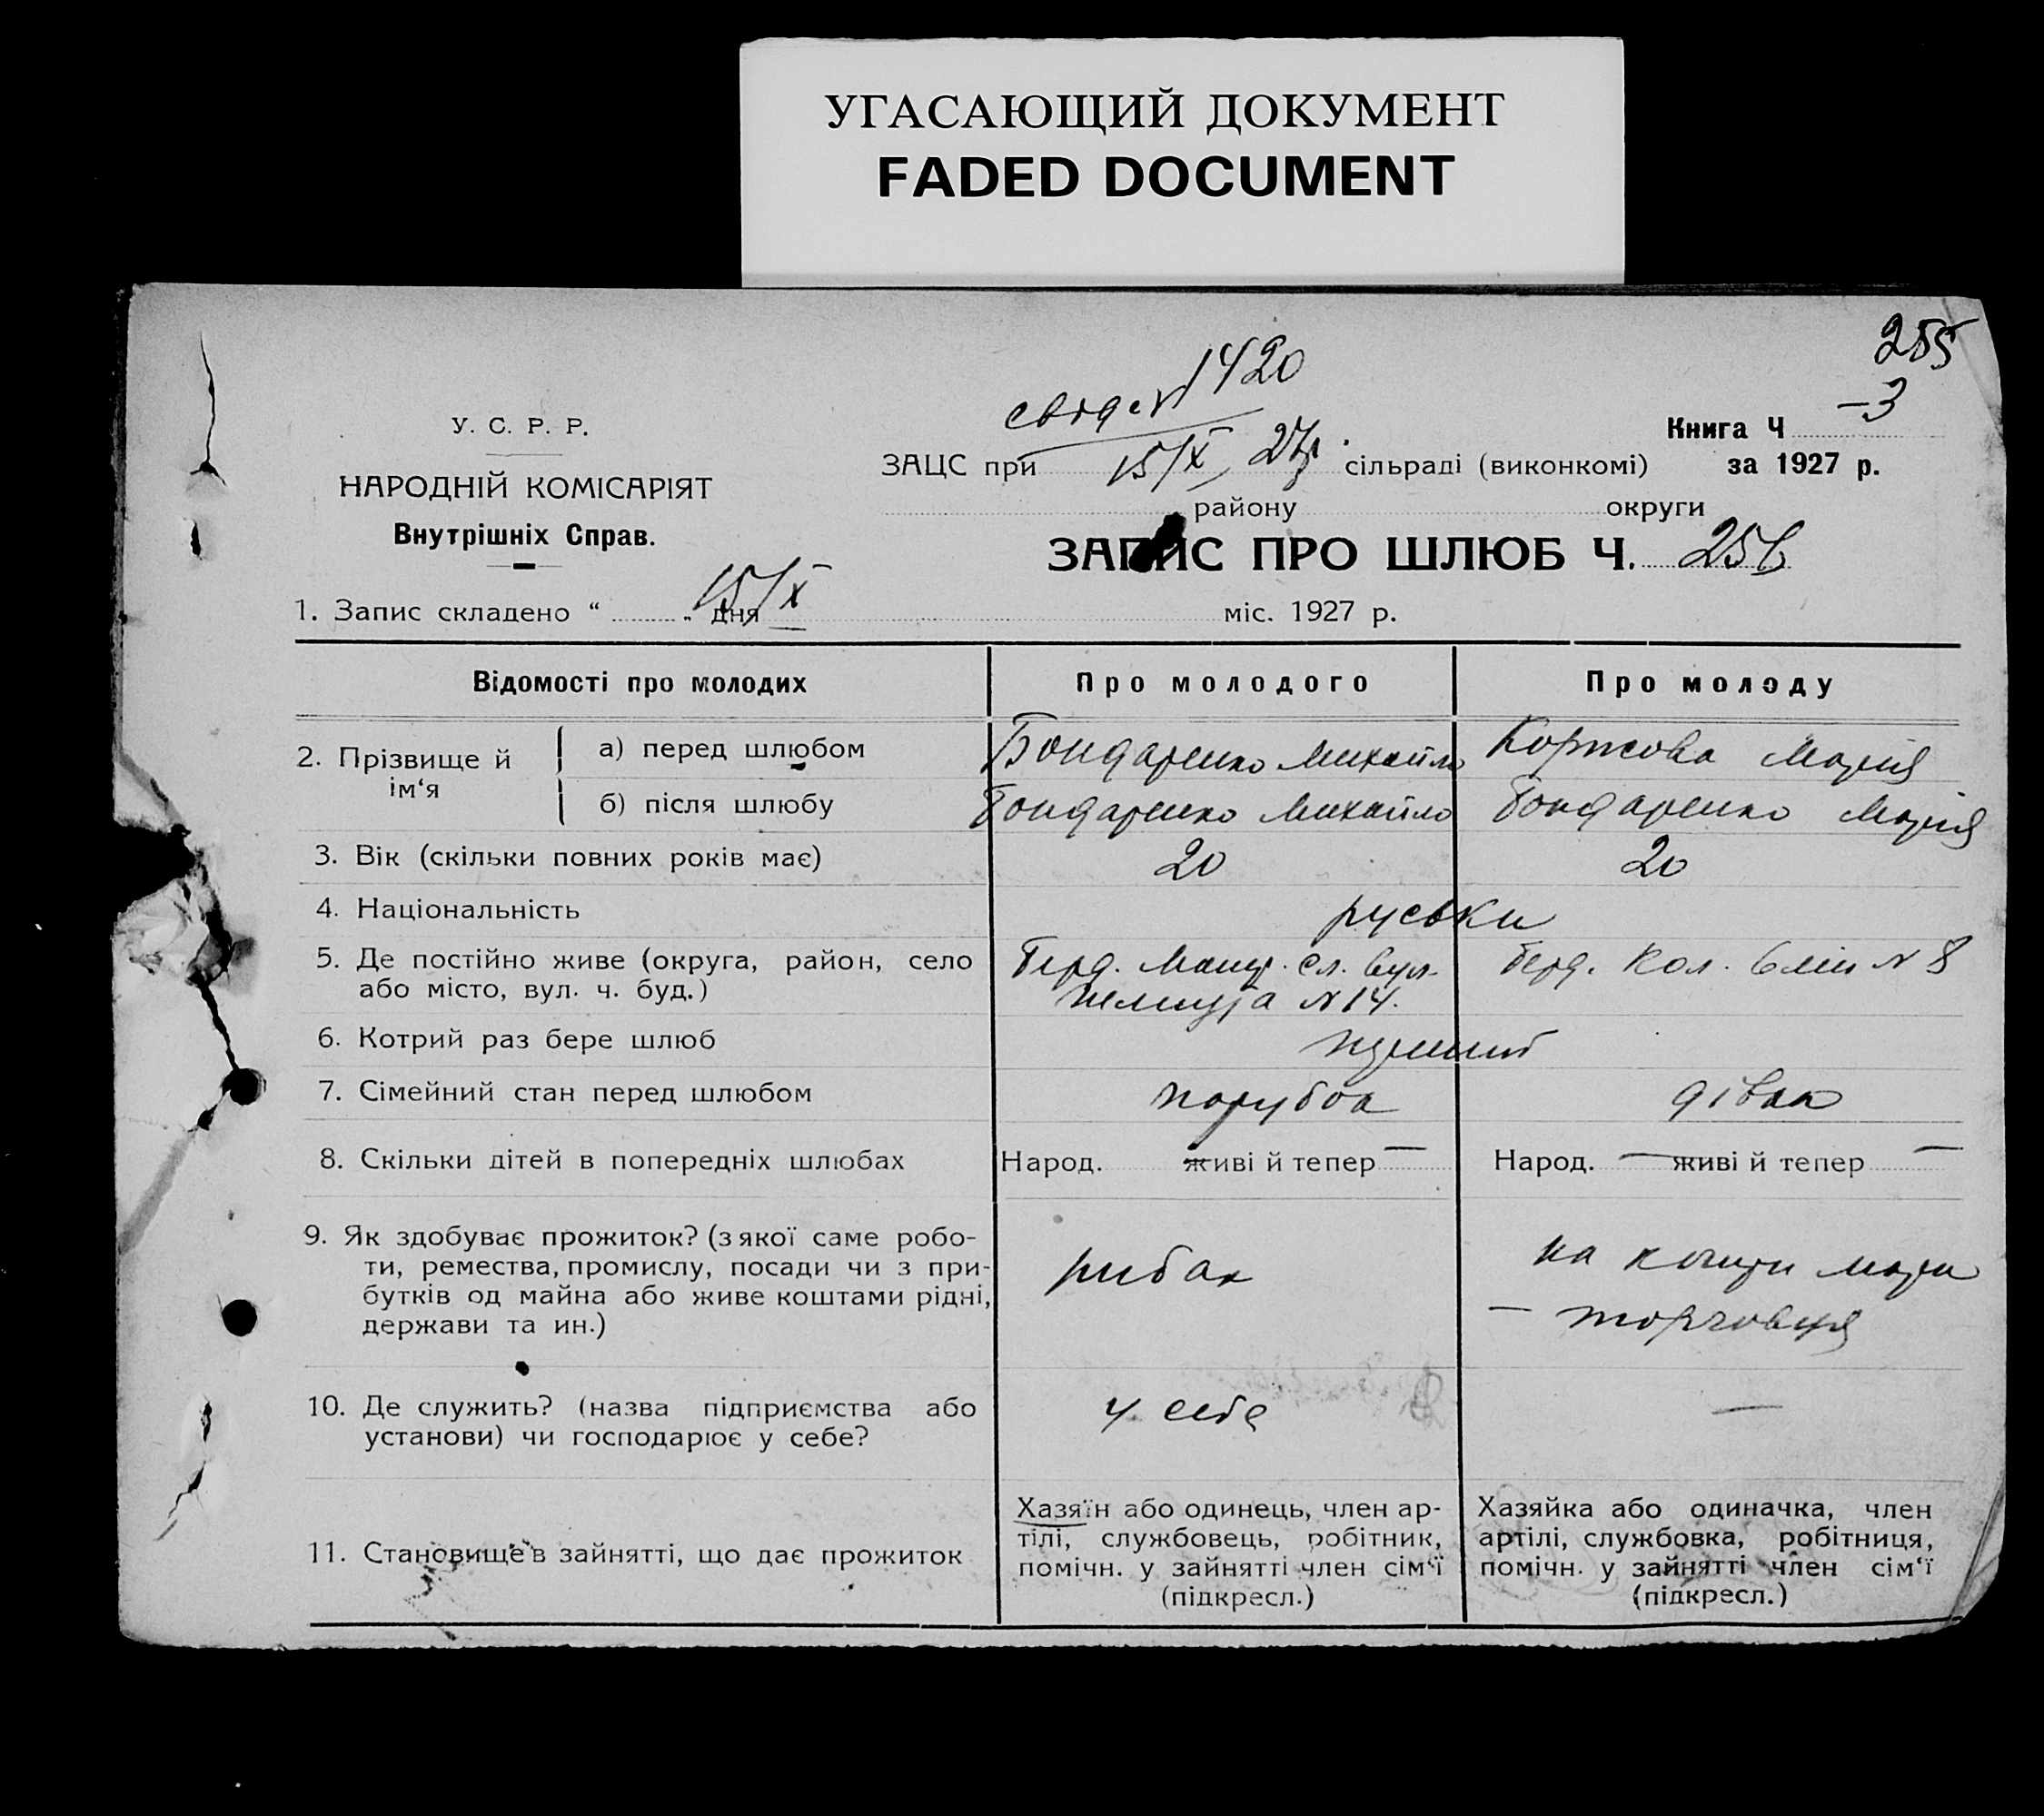 УГАСАЮЩИЙ ДОКУМЕНТ
FADED DOCUMENT
255
1420
15/X 27р.
У. С. Р. Р.
НАРОДНІЙ КОМІСАРІЯТ
Внутрішніх Справ.
Книга Ч 3
за 1927 р.
ЗАЦС при сільраді (виконкомі)
району округи
ЗАПИС ПРО ШЛЮБ Ч. 256
1. Запис складено “ „ дня 15/X міс. 1927 р.
Відомості про молодих Про молодого Про молоду
2. Прізвище й ім‘я
а) перед шлюбом Бондаренко Михайло Коржова Марія
б) після шлюбу Бондаренко Михайло Бондаренко Марія
3. Вік (скільки повних років має) 20 20
4. Національність руськи
5. Де постійно живе (округа, район, село Берд. сл. вул. Берд. Кол. 6 лін N 8
або місто, вул. ч. буд.) N 14.
6. Котрий раз бере шлюб
7. Сімейний стан перед шлюбом парубок дівка
8. Скільки дітей в попередніх шлюбах Народ. живі й тепер — Народ. — живі й тепер —
9. Як здобуває прожиток? (з якої саме робо-
ти, ремества, промислу, посади чи з при-
бутків од майна або живе коштами рідні,
держави та ин.)
рибак
на кошти мати
— торговця
10. Де служить? (назва підприємства або
установи) чи господарює у себе?
у себе —
11. Становище в зайнятті, що дає прожиток
Хазяїн або одинець, член ар-
тілі, службовець, робітник,
помічн. у зайнятті член сім‘ї
(підкресл.)
Хазяйка або одиначка, член
артілі, службовка, робітниця,
помічн. у зайнятті член сім‘ї
(підкресл.)